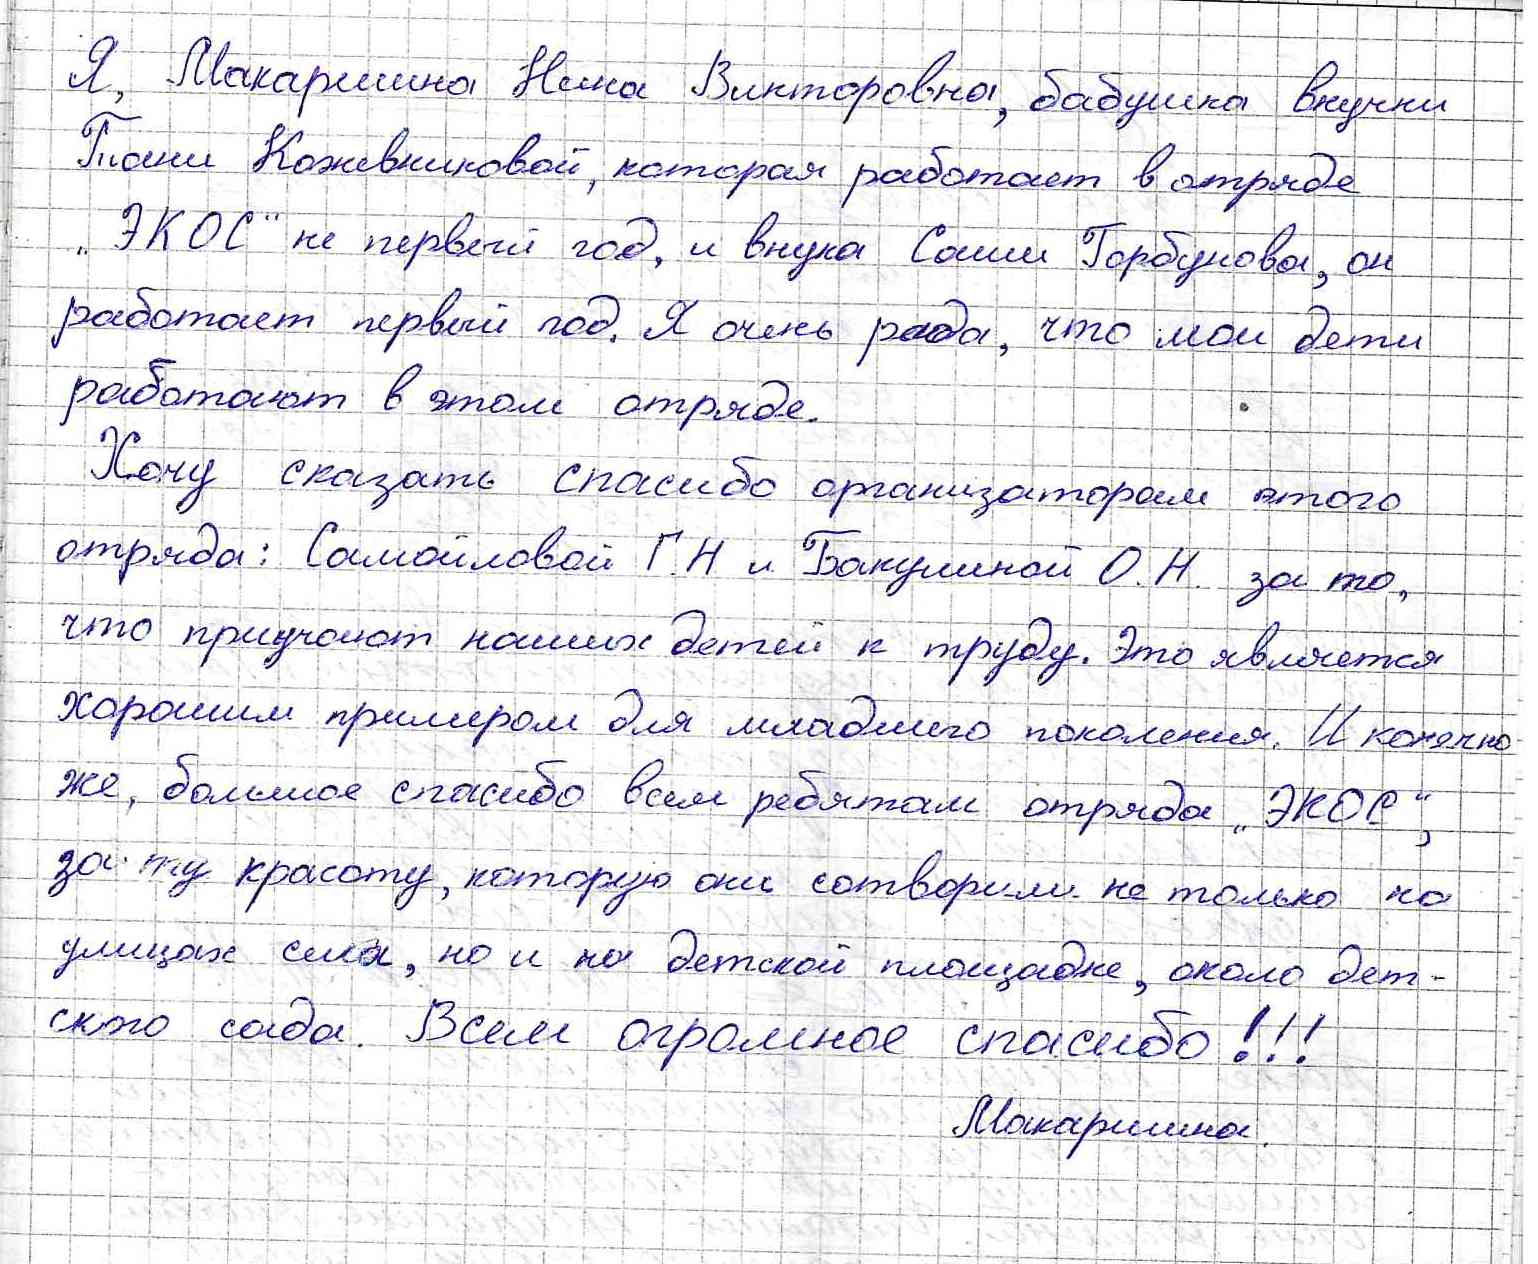 Я, Макаришина Нина Викторовна, бабушка внучки
Тани Кожевниковой, которая работает в отряде
„ЭКОС" не первый год, и внука Саши Горбунова, он
работает первый год. Я очень рада, что мои дети
работают в этом отряде.
Хочу сказать спасибо организаторам этого
отряда: Самойловой Г.Н и Бакулиной О.Н. за то,
что приучают наших детей к труду. Это является
хорошим примером для младшего поколения. И конечно
же, большое спасибо всем ребятам отряда „ЭКОС",
за ту красоту, которую они сотворили не только на
улицах села, но и на детской площадке, около дет-
ского сада. Всем огромное спасибо!!!
Макаришина.